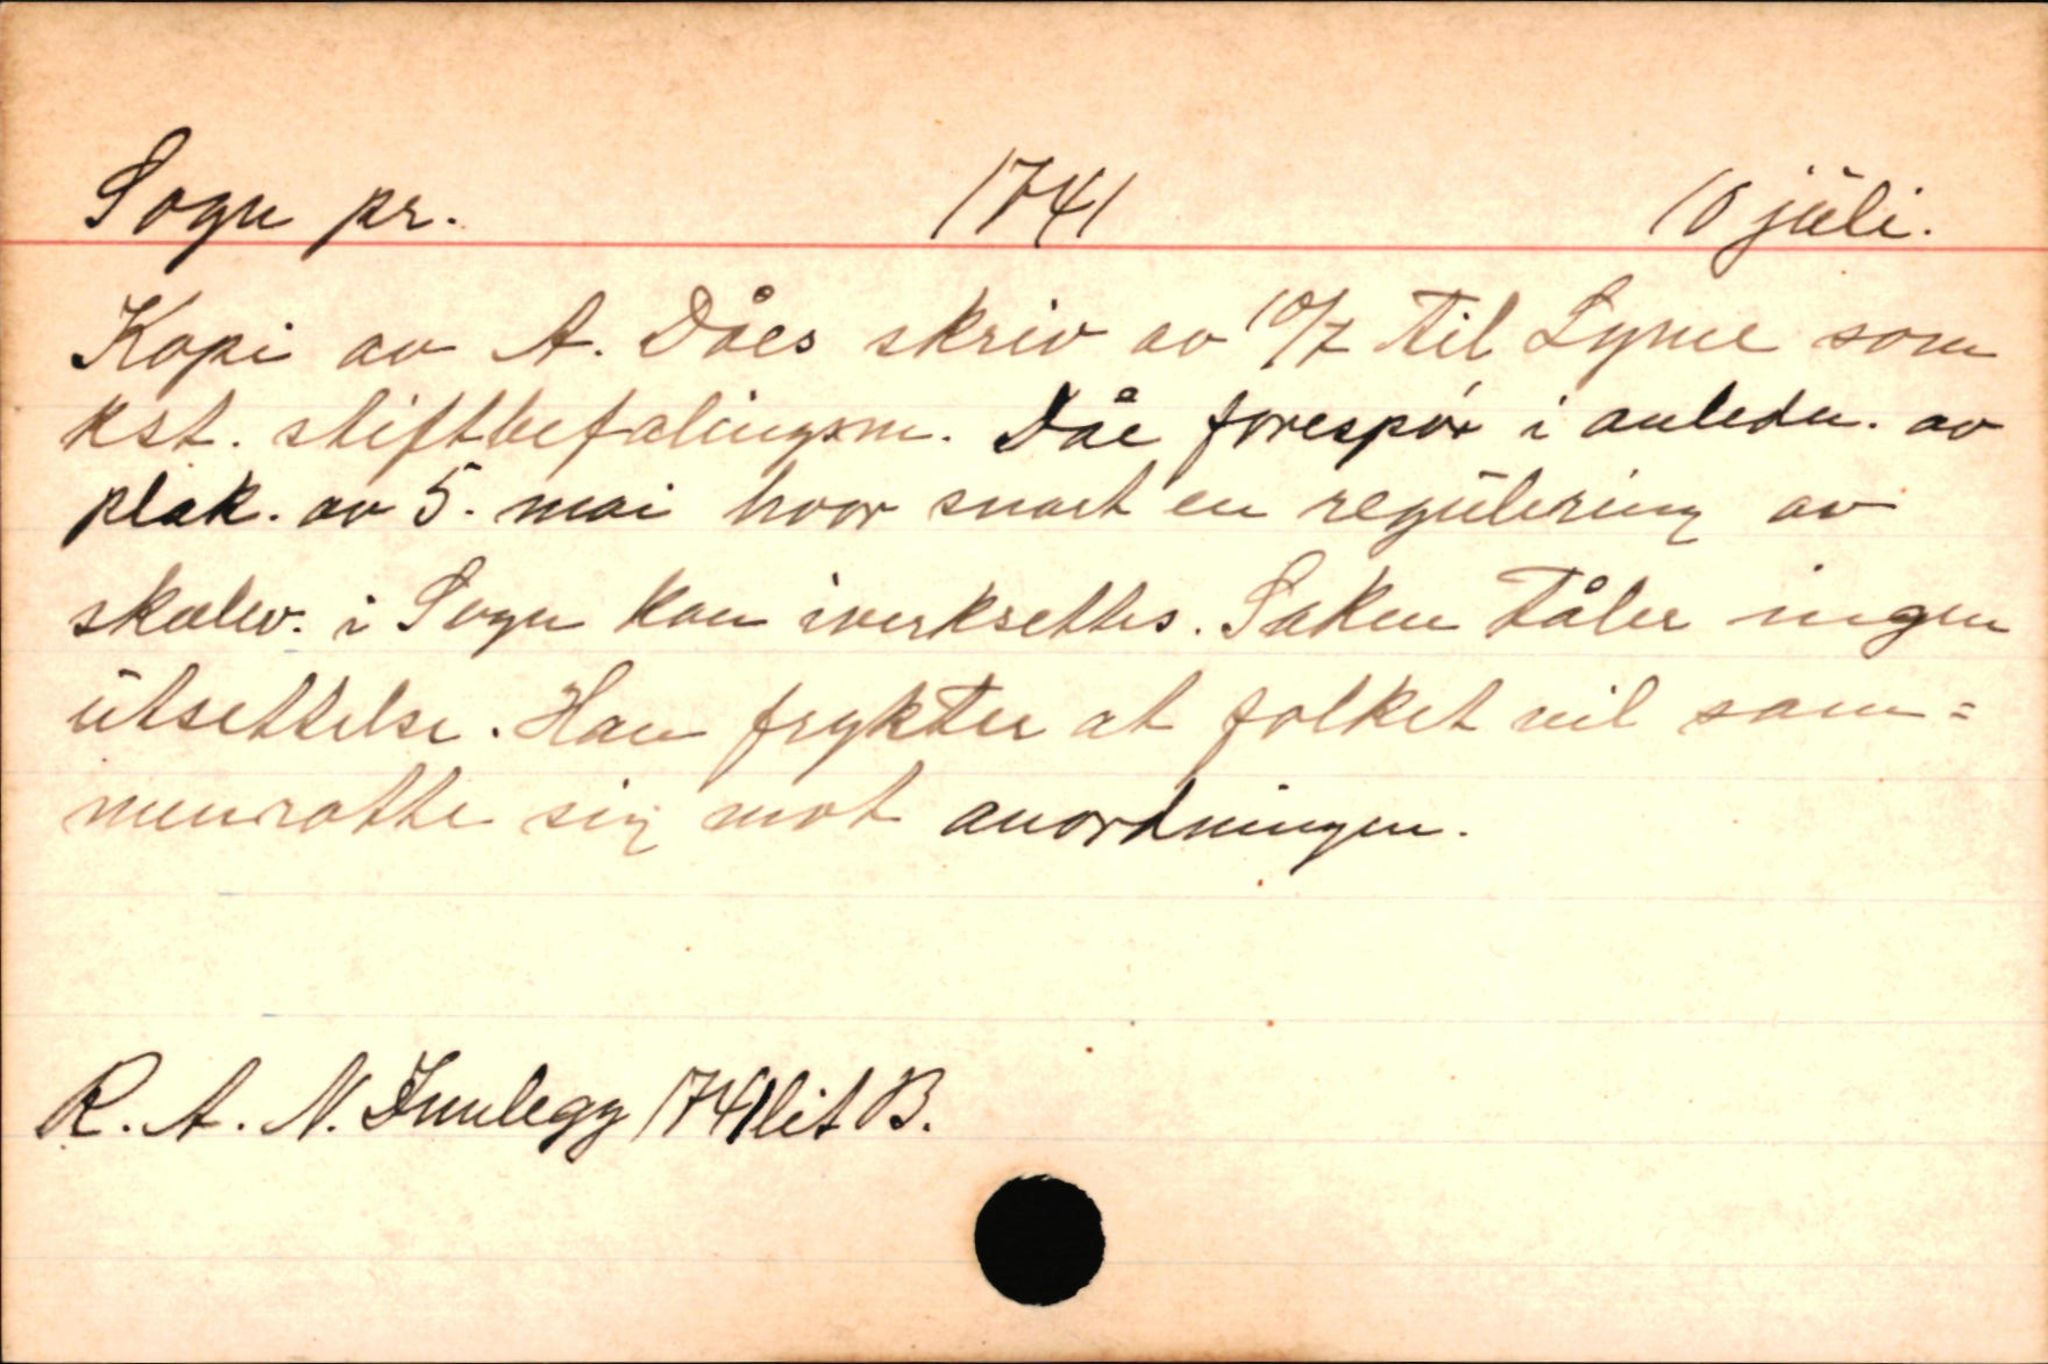 Sogn pr. 1741 10 juli.
Kopi av A. Dåes skriv av 10/7 til Lyme som
kst. stiftbefalingsm. Dåe forespør i anledn. av
plak. av 5. mai hvor snart en regulering av
skolev. i Sogn kan iverksettes. Saken tåler ingen
utsettelse. Han frykter at folket vil sam=
menrotte sig mot anordningen.
R. A. N. Innlegg 1741 lit B.